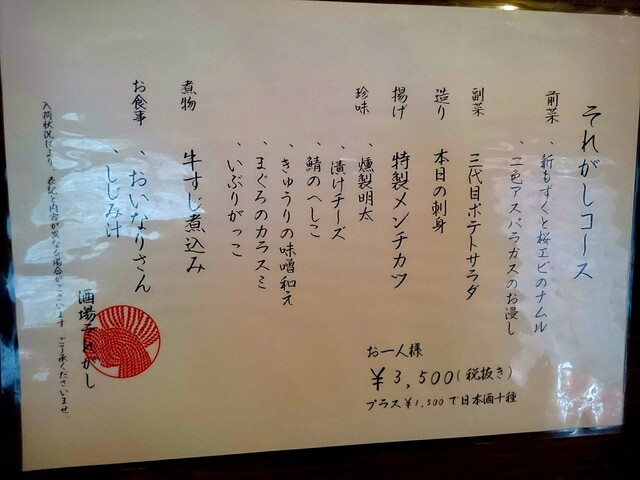 それがしコース
前菜 ・新もずくと桜エビのナムル
・二色アスパラガスのお浸し
副菜 三代目ポテトサラダ
造り 本日の刺身
揚げ 特製メンチカツ
珍味 ・燻製明太
・漬けチーズ
・鯖のへしこ
・きゅうりの味噌和え
・まぐろのカラスミ
・いぶりがっこ
煮物 牛すじ煮込み
お食事 ・おいなりさん
・しじみ汁
お一人様
¥3,500(税抜き)
プラス¥1,500で日本酒十種
酒場それがし
入荷状況により、表記と内容が異なる場合がございます ご了承くださいませ。